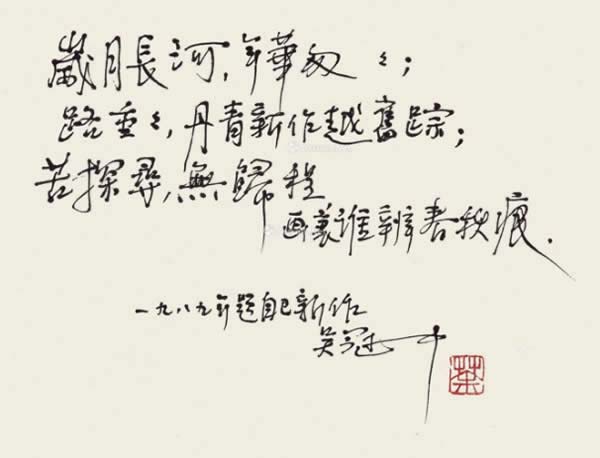 歲月長河，年華匆々；
路重々，丹青新作越舊踪；
苦探尋，無歸程
画裏谁辨春秋痕．
一九八九年題自己新作
吴冠中
荼